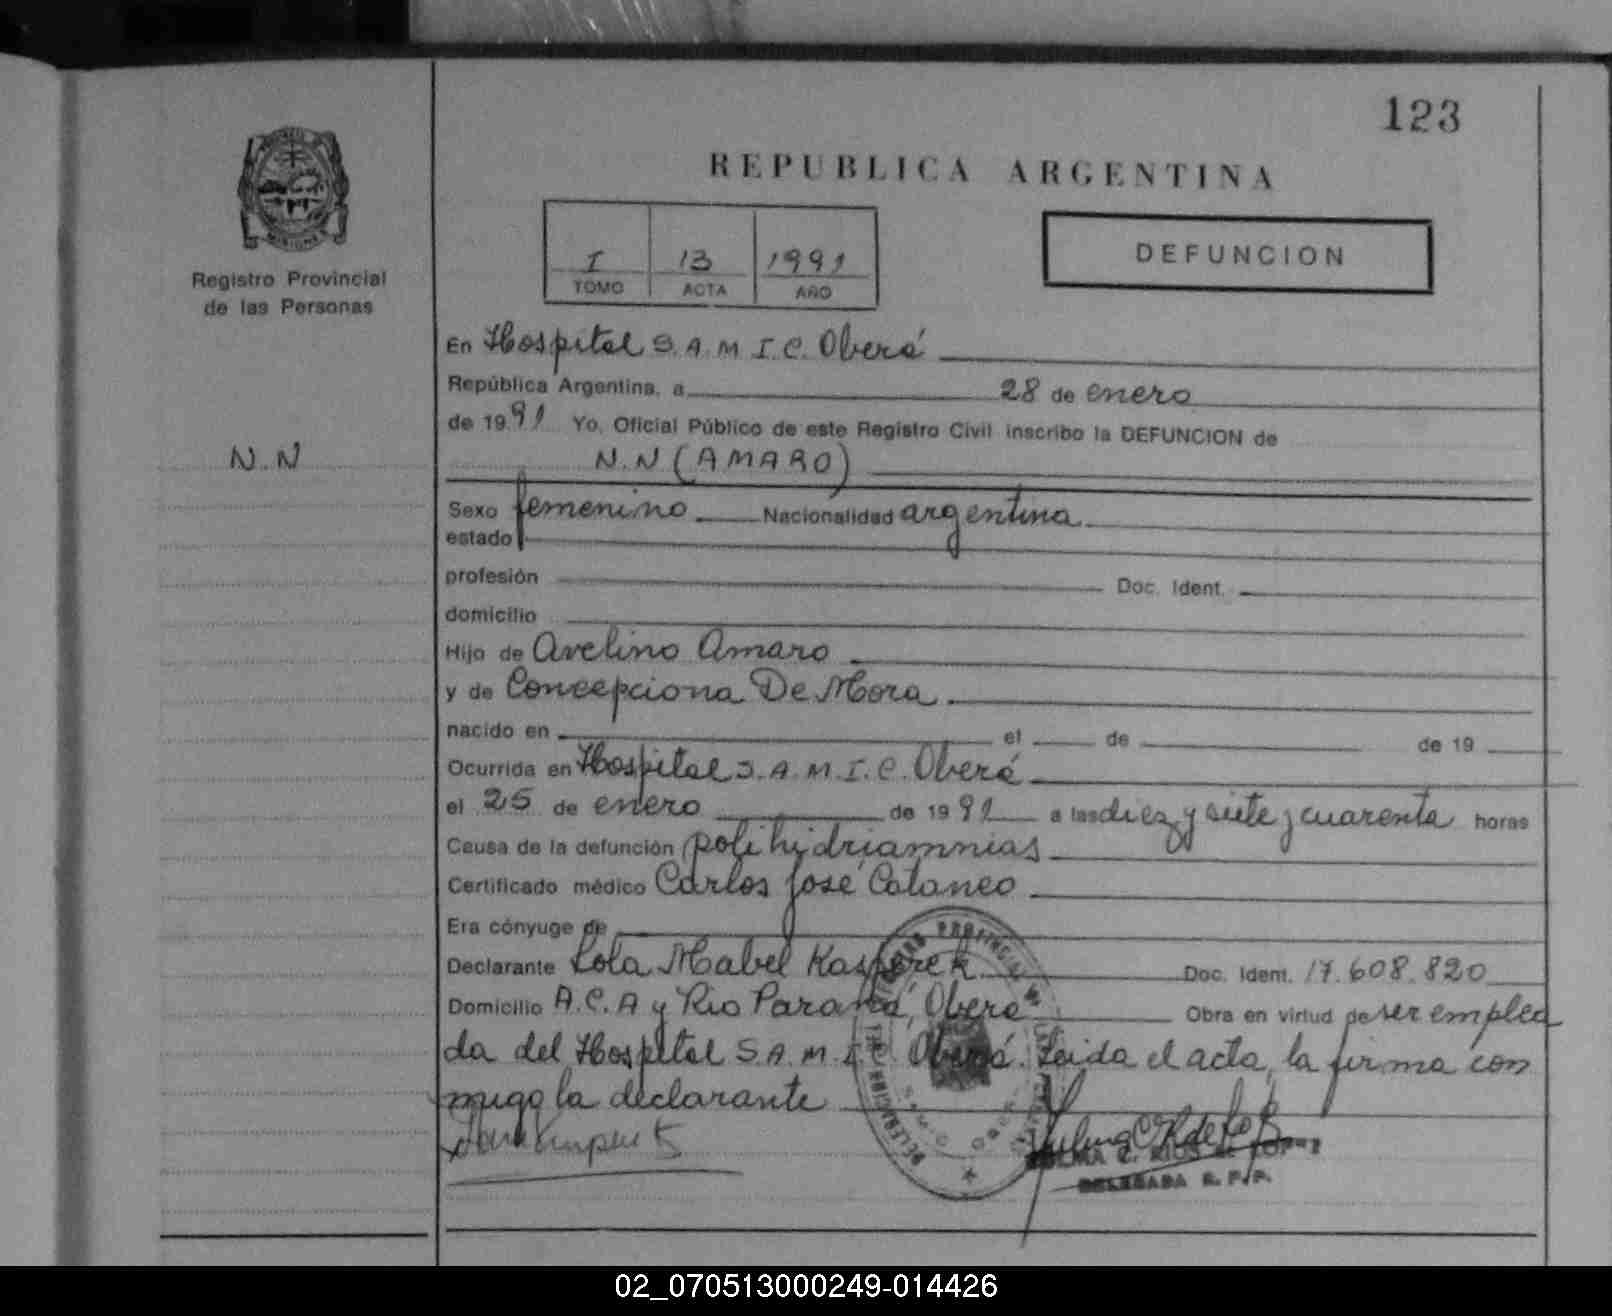 123
REPUBLICA ARGENTINA
MISIONES
Registro Provincial
de las Personas
I 13 1991
TOMO ACTA AÑO
DEFUNCION
En Hospital S.A.M.I.C. Oberá
República Argentina, a 28 de enero
de 1991 Yo, Oficial Público de este Registro Civil inscribo la DEFUNCION de
N.N
N.N (AMARO)
Sexo femenino Nacionalidad argentina
estado
profesión Doc. Ident.
domicilio
Hijo de Avelino Amaro
y de Concepciona De Mora
nacido en el de de 19
Ocurrida en Hospital S.A.M.I.C. Oberá
el 25 de enero de 1991 a las diez y siete y cuarenta horas
Causa de la defunción polihidriamnias
Certificado médico Carlos José Cataneo
Era cónyuge de
Declarante Lola Mabel Kasperek Doc. Ident. 17.608.820
Domicilio A.C.A y Rio Paraná, Oberá Obra en virtud de ser emplea
da del Hospital S.A.M.I.C. Oberá. Leida el acta, la firma con
migo la declarante
DELEGADA R.P.P.
02_070513000249-014426